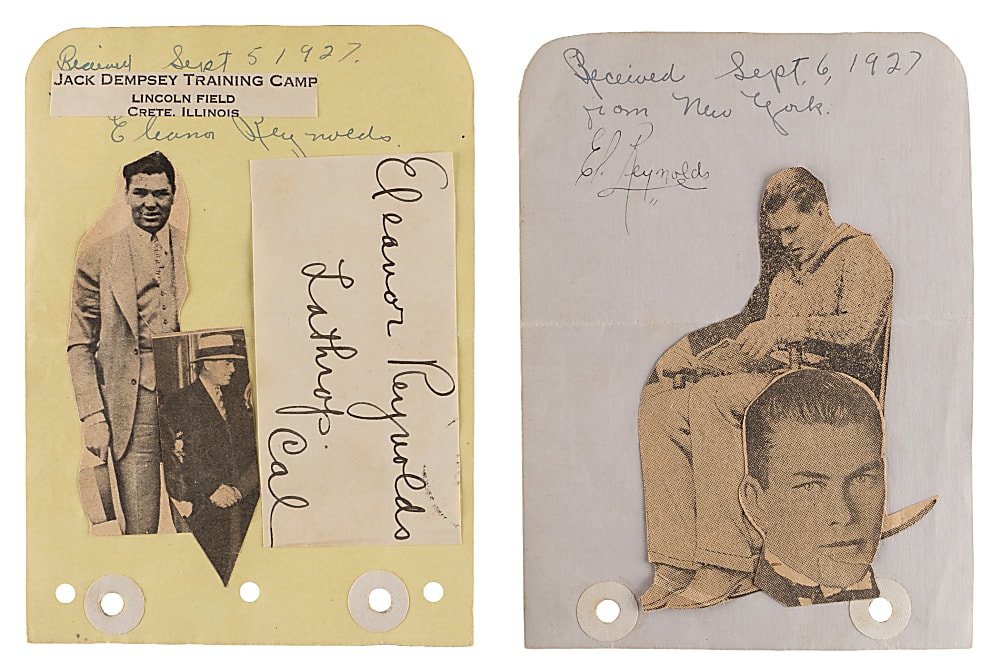 Received Sept 5 1927.
JACK DEMPSEY TRAINING CAMP
LINCOLN FIELD
CRETE, ILLINOIS
Eleanor Reynolds.
Eleanor Reynolds
Lathrop.
Cal
Received Sept. 6, 1927
from New York.
El. Reynolds